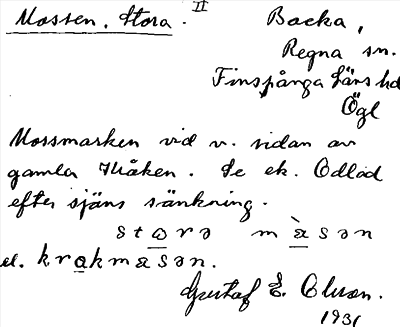 Mossen, Stora. II
Backa,
Regna sn.
Finspånga läns hd
Ögl
Mossmarken vid v. sidan av
gamla Kråken. Se ek. Odlad
efter sjöns sänkning.
stɷrə mɑ̀sən
el. krɑkmɑsən.
Gustaf E. Olsson.
1931